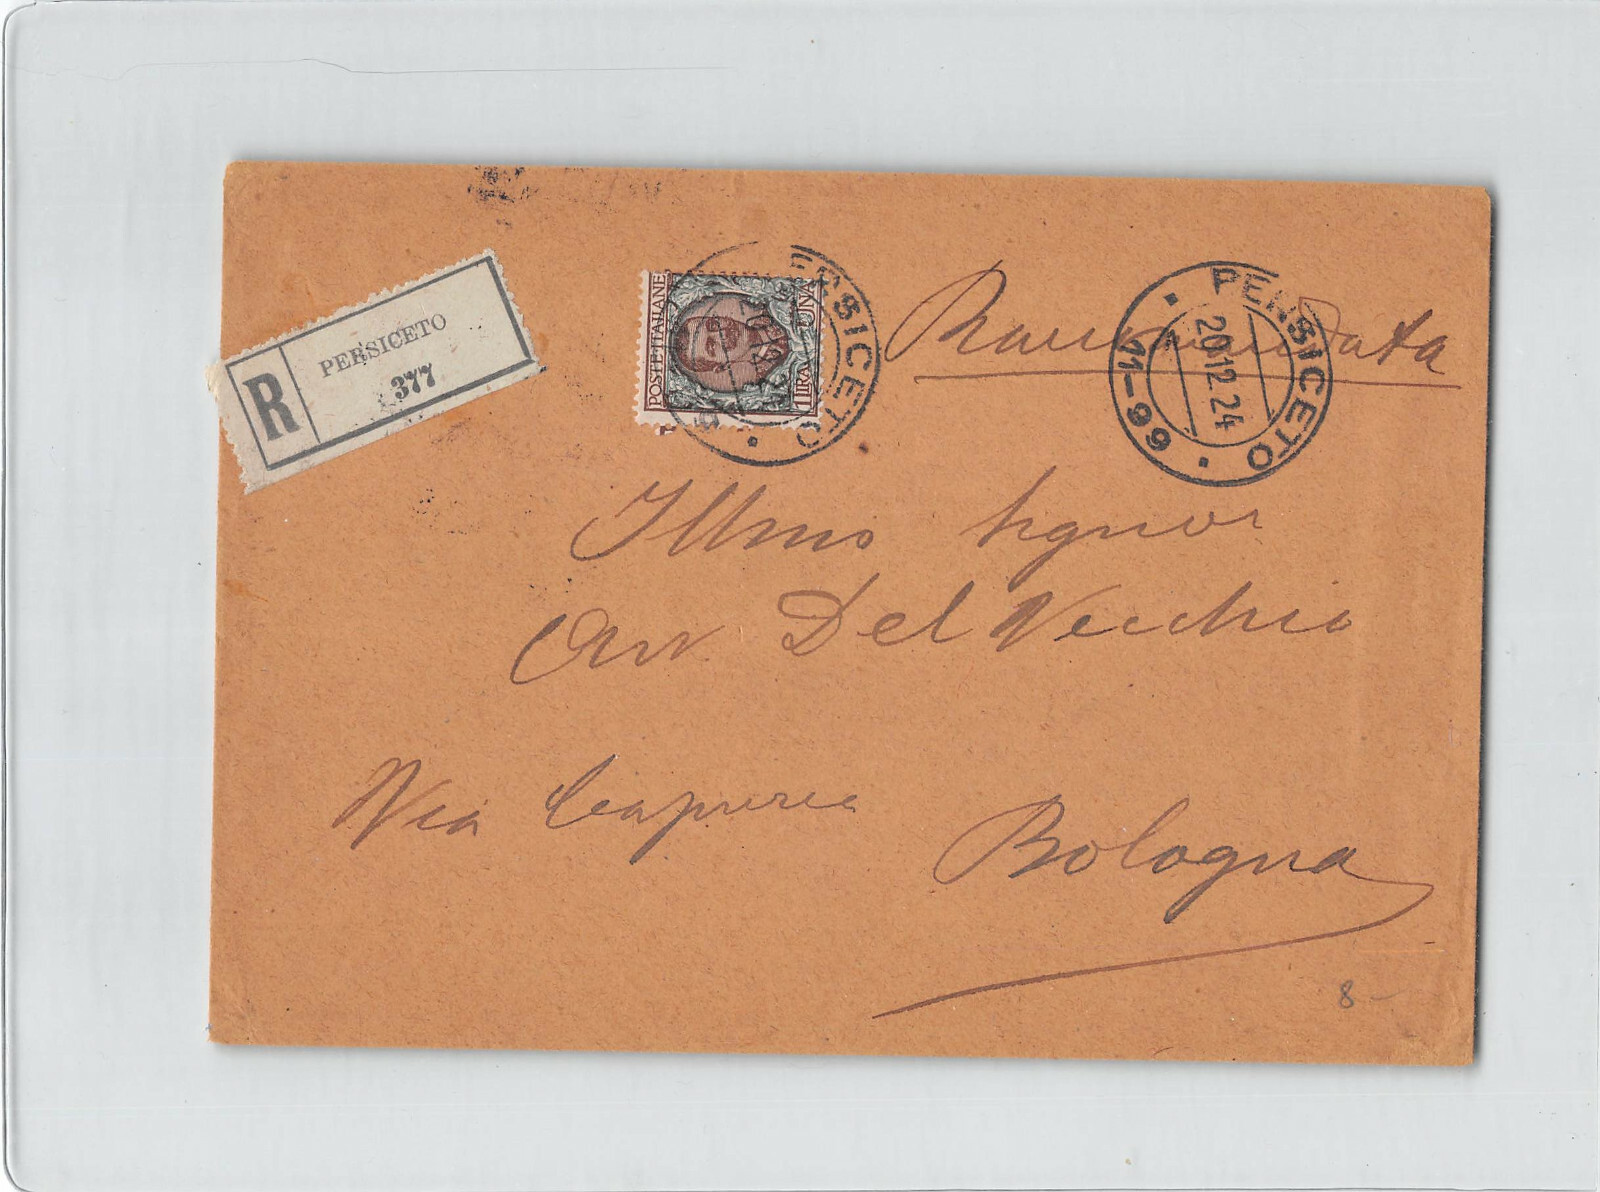 R
PERSICETO
377
POSTE ITALIANE
1 LIRA UNA
ERSICETO
Raccomandata
PERSICETO
20.12.24
66-11
Illmo Signor
Avv Del Vecchio
Via
Bologna
8-